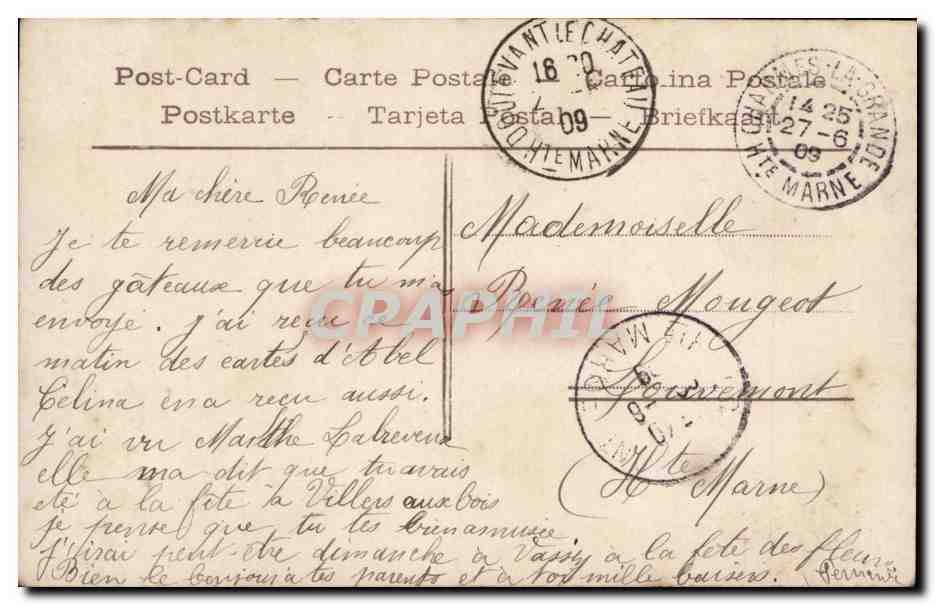 Post-Card — Carte Postale — Cartolina Postale
Postkarte — Tarjeta Postal — Briefkaart
DOULEVANT LE CHATEAU
16 30
09
HTE MARNE
CHARMES-LA-GRANDE
14 25
27-6
09
HTE MARNE
Ma chère Renée
Je te remerrie beaucoup
des gâteaux que tu m'a
envoyé. J'ai reçu ce
matin des cartes d'Abel
Célina en a reçu aussi.
J'ai vu Marthe
elle ma dit que tu avais
eté à la fête à Villers aux bois
je pense que tu tes bien amusée
J'irai peut-être dimanche à Vassy à la fête des fleurs
Bien le bonjour à tes parents et à toi mille baisers.
Mademoiselle
Renée Mougeot
Louvemont
(Hte Marne)
HTE MARNE
CPAPHIL